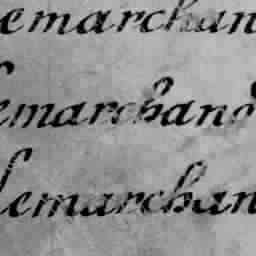 emarchan
emarchand
lemarchan